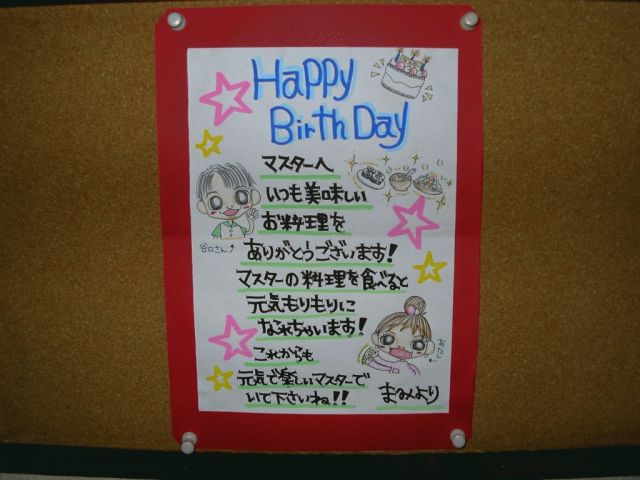 Happy
Birth Day
マスターへ
いつも美味しい
お料理を
谷口さん
ありがとうございます!
マスターの料理を食べると
元気もりもりに
なれちゃいます!
これからも
元気で楽しいマスターで
いて下さいね!!
まみより